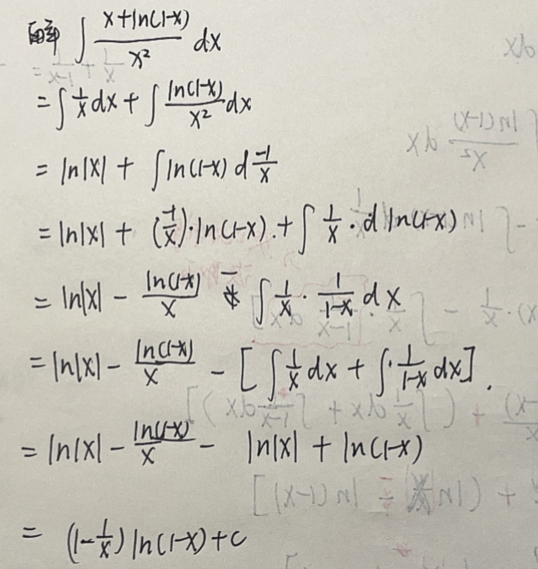 解 ∫ (x+ln(1-x))/x² dx
= ∫ 1/x dx + ∫ ln(1-x)/x² dx
= ln|x| + ∫ ln(1-x) d -1/x
= ln|x| + (-1/x)·ln(1-x) + ∫ 1/x · d ln(1-x)
= ln|x| - ln(1-x)/x - ∫ 1/x · 1/(1-x) dx
= ln|x| - ln(1-x)/x - [∫ 1/x dx + ∫ 1/(1-x) dx].
= ln|x| - ln(1-x)/x - ln|x| + ln(1-x)
= (1-1/x) ln(1-x) + c